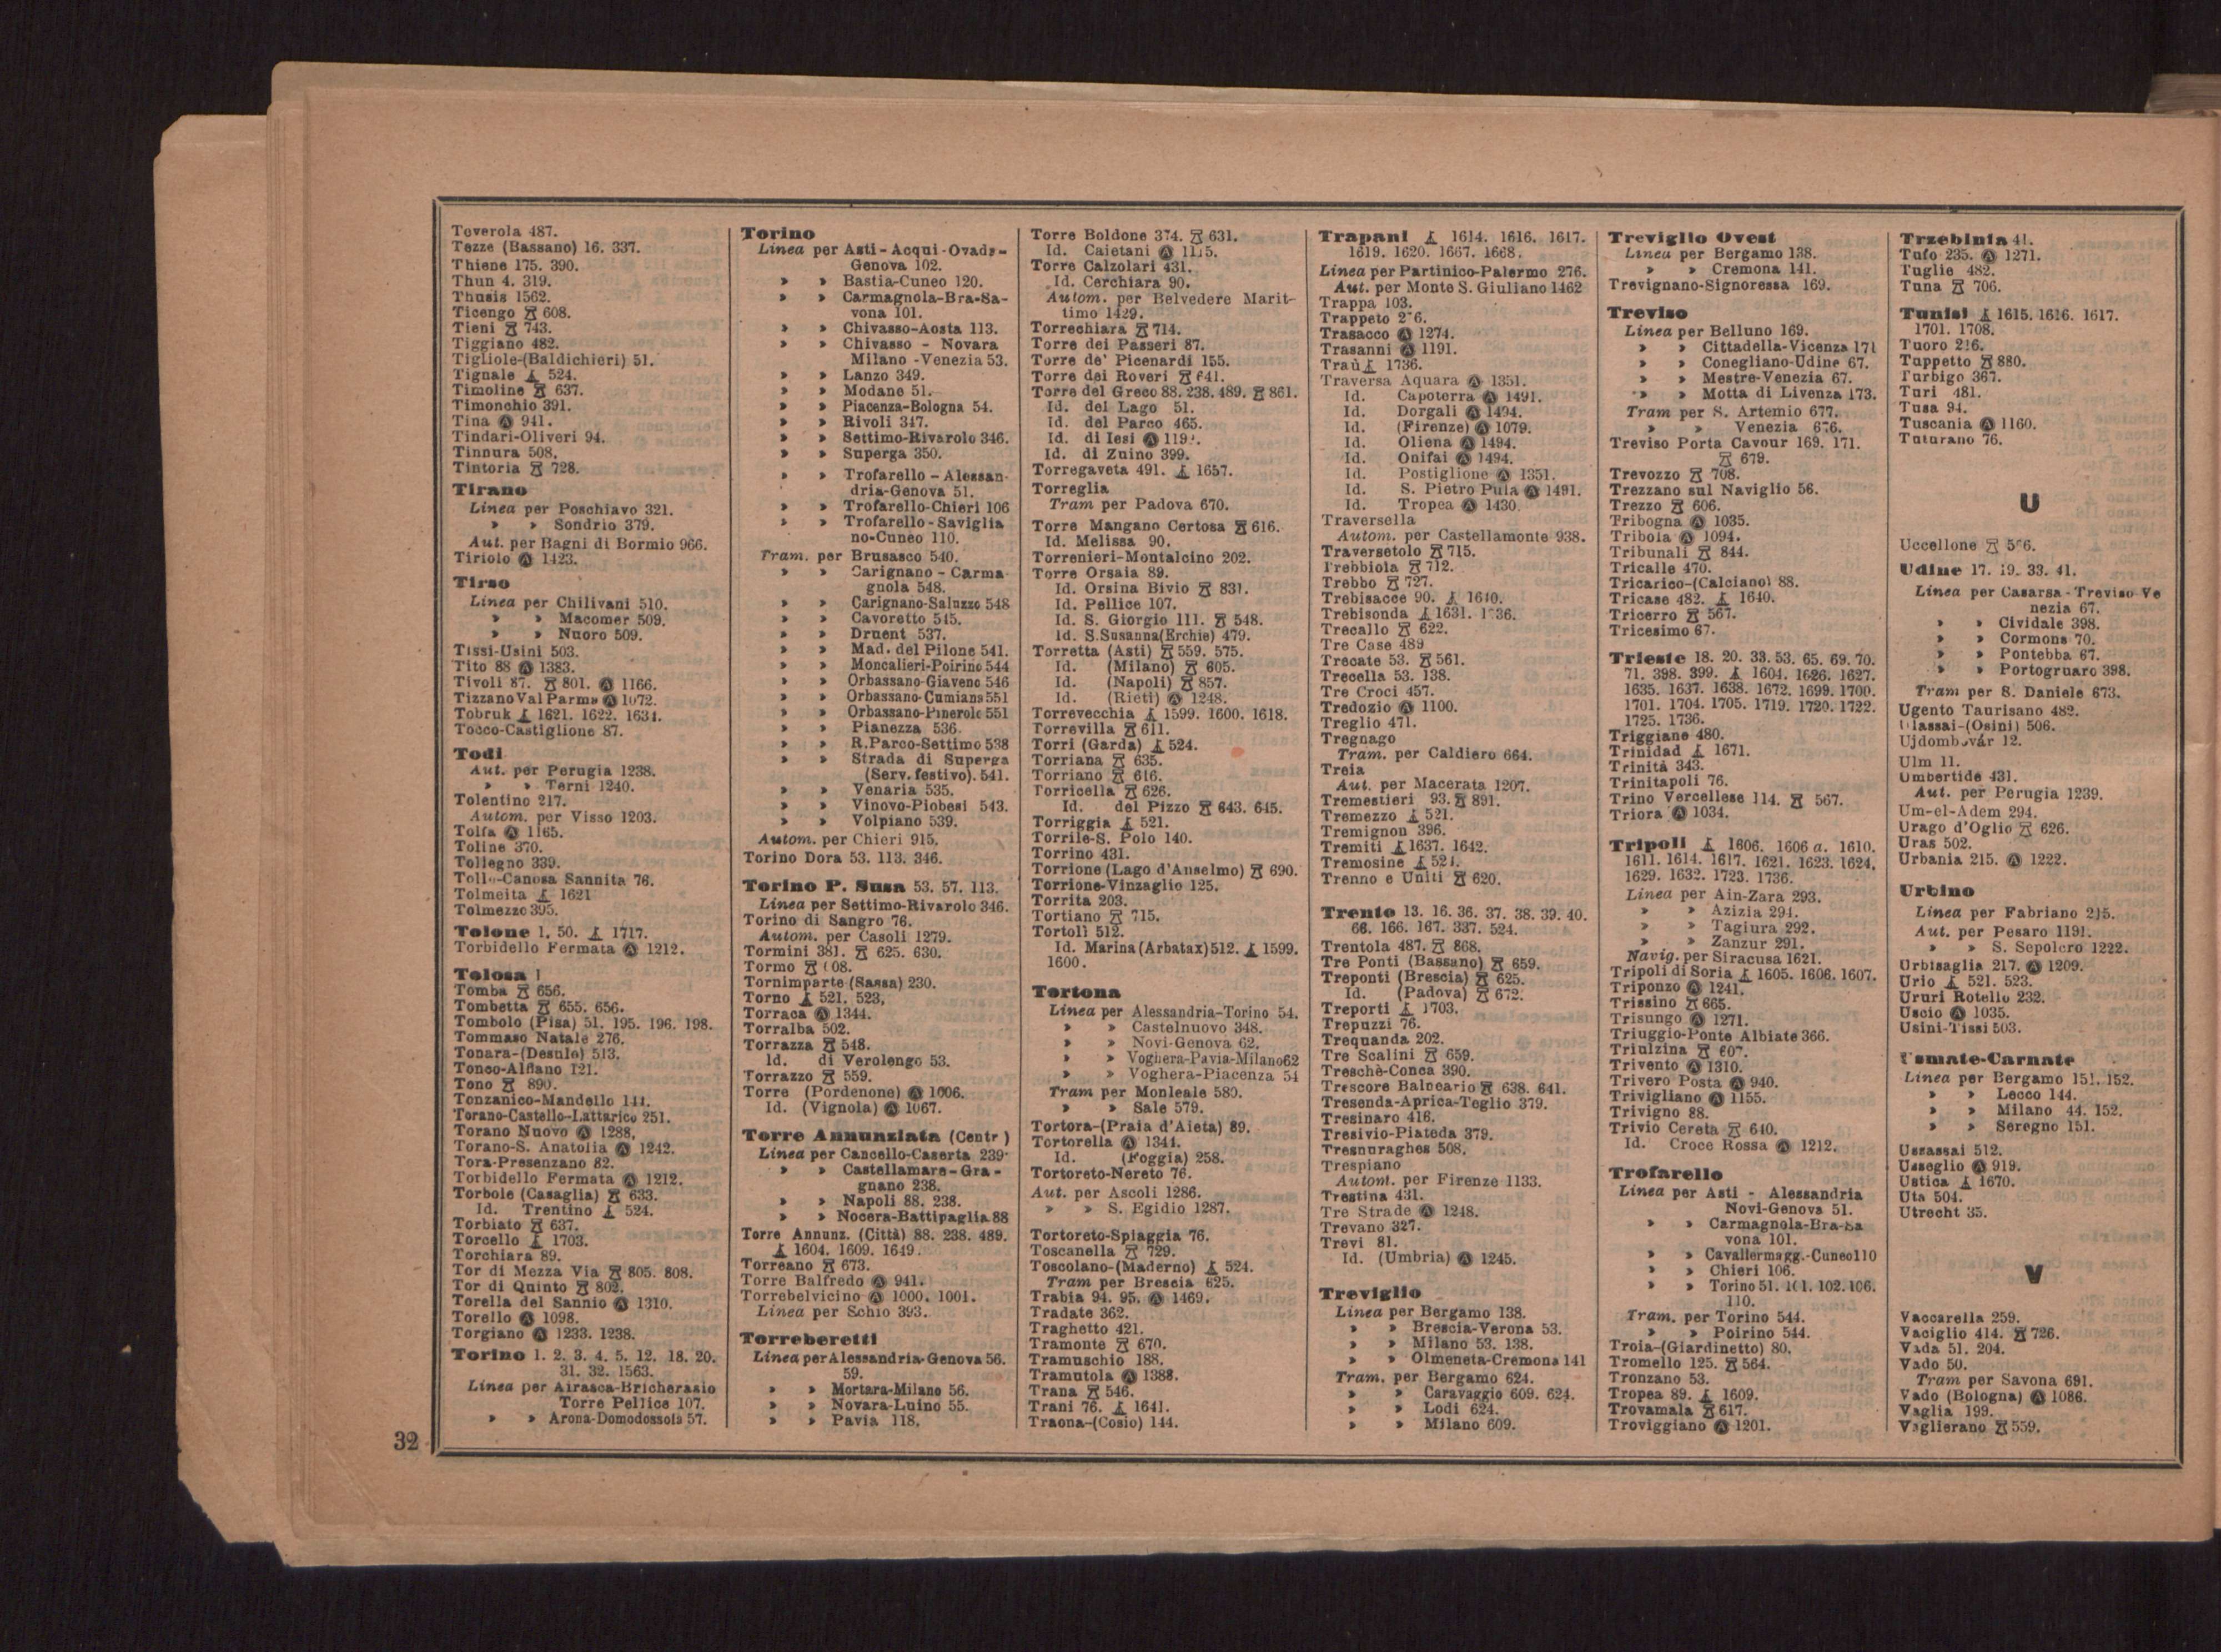 Teverola 487.
Tezze (Bassano) 16. 337.
Thiene 175. 390.
Thun 4. 319.
Thusis 1562.
Ticengo 608.
Tieni 743.
Tiggiano 482.
Tigliole-(Baldichieri) 51.
Tignale 524.
Timoline 637.
Timonchio 391.
Tina Ⓐ 941.
Tindari-Oliveri 94.
Tinnura 508.
Tintoria 728.
Tirano
Linea per Poschiavo 321.
» » Sondrio 379.
Aut. per Bagni di Bormio 966.
Tiriolo Ⓐ 1423.
Tirso
Linea per Chilivani 510.
» » Macomer 509.
» » Nuoro 509.
Tissi-Usini 503.
Tito 88 Ⓐ 1383.
Tivoli 87. 801. Ⓐ 1166.
Tizzano Val Parma Ⓐ 1072.
Tobruk 1621. 1622. 1634.
Tocco-Castiglione 87.
Todi
Aut. per Perugia 1238.
» » Terni 1240.
Tolentino 217.
Autom. per Visso 1203.
Tolfa Ⓐ 1165.
Toline 370.
Tollegno 339.
Tollo-Canosa Sannita 76.
Tolmeita 1621
Tolmezzo 395.
Tolone 1. 50. 1717.
Torbidello Fermata Ⓐ 1212.
Tolosa 1
Tomba 656.
Tombetta 655. 656.
Tombolo (Pisa) 51. 195. 196. 198.
Tommaso Natale 276.
Tonara-(Desulo) 513.
Tonco-Alfiano 121.
Tono 890.
Tonzanico-Mandello 144.
Torano-Castello-Lattarico 251.
Torano Nuovo Ⓐ 1288.
Torano-S. Anatolia Ⓐ 1242.
Tora-Presenzano 82.
Torbidello Fermata Ⓐ 1212.
Torbole (Casaglia) 633.
Id. Trentino 524.
Torbiato 637.
Torcello 1703.
Torchiara 89.
Tor di Mezza Via 805. 808.
Tor di Quinto 802.
Torella del Sannio Ⓐ 1310.
Torello Ⓐ 1098.
Torgiano Ⓐ 1233. 1238.
Torino 1. 2. 3. 4. 5. 12. 18. 20.
31. 32. 1563.
Linea per Airasca-Bricherasio
Torre Pellice 107.
» » Arona-Domodossola 57.
Torino
Linea per Asti-Acqui-Ovada-
Genova 102.
» » Bastia-Cuneo 120.
» » Carmagnola-Bra-Sa-
vona 101.
» » Chivasso-Aosta 113.
» » Chivasso - Novara
Milano-Venezia 53.
» » Lanzo 349.
» » Modane 51.
» » Piacenza-Bologna 54.
» » Rivoli 347.
» » Settimo-Rivarolo 346.
» » Superga 350.
» » Trofarello - Alessan-
dria-Genova 51.
» » Trofarello-Chieri 106
» » Trofarello-Saviglia
no-Cuneo 110.
Tram. per Brusasco 540.
» » Carignano - Carma
gnola 548.
» » Carignano-Saluzzo 548
» » Cavoretto 545.
» » Druent 537.
» » Mad. del Pilone 541.
» » Moncalieri-Poirino 544
» » Orbassano-Giaveno 546
» » Orbassano-Cumiana 551
» » Orbassano-Pinerolo 551
» » Pianezza 536.
» » R. Parco-Settimo 538
» » Strada di Superga
(Serv. festivo). 541.
» » Venaria 535.
» » Vinovo-Piobesi 543.
» » Volpiano 539.
Autom. per Chieri 915.
Torino Dora 53. 113. 346.
Torino P. Susa 53. 57. 113.
Linea per Settimo-Rivarolo 346.
Torino di Sangro 76.
Autom. per Casoli 1279.
Tormini 381. 625. 630.
Tormo 608.
Tornimparte (Sassa) 230.
Torno 521. 523.
Torraca Ⓐ 1344.
Torralba 502.
Torrazza 548.
Id. di Verolengo 53.
Torrazzo 559.
Torre (Pordenone) Ⓐ 1006.
Id. (Vignola) Ⓐ 1067.
Torre Annunziata (Centr)
Linea per Cancello-Caserta 239.
» » Castellamare-Gra-
gnano 238.
» » Napoli 88. 238.
» » Nocera-Battipaglia 88
Torre Annunz. (Città) 88. 238. 489.
1604. 1609. 1649.
Torreano 673.
Torre Balfredo Ⓐ 941.
Torrebelvicino Ⓐ 1000. 1001.
Linea per Schio 393.
Torreberetti
Linea per Alessandria-Genova 56.
59.
» » Mortara-Milano 56.
» » Novara-Luino 55.
» » Pavia 118.
Torre Boldone 374. 631.
Id. Caietani Ⓐ 1115.
Torre Calzolari 431.
Id. Cerchiara 90.
Autom. per Belvedere Marit-
timo 1429.
Torrechiara 714.
Torre dei Passeri 87.
Torre de' Picenardi 155.
Torre dei Roveri 641.
Torre del Greco 88. 238. 489. 861.
Id. del Lago 51.
Id. del Parco 465.
Id. di Iesi Ⓐ
Id. di Zuino 399.
Torregaveta 491. 1657.
Torreglia
Tram per Padova 670.
Torre Mangano Certosa 616.
Id. Melissa 90.
Torrenieri-Montalcino 202.
Torre Orsaia 89.
Id. Orsina Bivio 831.
Id. Pellice 107.
Id. S. Giorgio 111. 548.
Id. S. Susanna (Erchie) 479.
Torretta (Asti) 559. 575.
Id. (Milano) 605.
Id. (Napoli) 857.
Id. (Rieti) Ⓐ 1248.
Torrevecchia 1599. 1600. 1618.
Torrevilla 611.
Torri (Garda) 524.
Torriana 635.
Torriano 616.
Torricella 626.
Id. del Pizzo 643. 645.
Torriggia 521.
Torrile-S. Polo 140.
Torrino 431.
Torrione (Lago d'Anselmo) 690.
Torrione-Vinzaglio 125.
Torrita 203.
Tortiano 715.
Tortolì 512.
Id. Marina (Arbatax) 512. 1599.
1600.
Tortona
Linea per Alessandria-Torino 54.
» » Castelnuovo 348.
» » Novi-Genova 62.
» » Voghera-Pavia-Milano 62
» » Voghera-Piacenza 54
Tram per Monleale 580.
» » Sale 579.
Tortora-(Praia d'Aieta) 89.
Tortorella Ⓐ 1344.
Id. (Foggia) 258.
Tortoreto-Nereto 76.
Aut. per Ascoli 1286.
» » S. Egidio 1287.
Tortoreto-Spiaggia 76.
Toscanella 729.
Toscolano-(Maderno) 524.
Tram per Brescia 625.
Trabia 94. 95. Ⓐ 1469.
Tradate 362.
Traghetto 421.
Tramonte 670.
Tramuschio 188.
Tramutola Ⓐ 1388.
Trana 546.
Trani 76. 1641.
Traona-(Cosio) 144.
Trapani 1614. 1616. 1617.
1619. 1620. 1667. 1668.
Linea per Partinico-Palermo 276.
Aut. per Monte S. Giuliano 1462
Trappa 103.
Trappeto 276.
Trasacco Ⓐ 1274.
Trasanni Ⓐ 1191.
Traù 1736.
Traversa Aquara Ⓐ 1351.
Id. Capoterra Ⓐ 1491.
Id. Dorgali Ⓐ 1494.
Id. (Firenze) Ⓐ 1079.
Id. Oliena Ⓐ 1494.
Id. Onifai Ⓐ 1494.
Id. Postiglione Ⓐ 1351.
Id. S. Pietro Pula Ⓐ 1491.
Id. Tropea Ⓐ 1430.
Traversella
Autom. per Castellamonte 938.
Traversetolo 715.
Trebbiola 712.
Trebbo 727.
Trebisacce 90. 1640.
Trebisonda 1631.
Trecallo 622.
Tre Case 489
Trecate 53. 561.
Trecella 53. 138.
Tre Croci 457.
Tredozio Ⓐ 1100.
Treglio 471.
Tregnago
Tram. per Caldiero 664.
Treia
Aut. per Macerata 1207.
Tremestieri 93. 891.
Tremezzo 521.
Tremignon 396.
Tremiti 1637. 1642.
Tremosine 524.
Trenno e Uniti 620.
Trento 13. 16. 36. 37. 38. 39. 40.
66. 166. 167. 337. 524.
Trentola 487. 868.
Tre Ponti (Bassano) 659.
Treponti (Brescia) 625.
Id. (Padova) 672.
Treporti 1703.
Trepuzzi 76.
Trequanda 202.
Tre Scalini 659.
Treschè-Conca 390.
Trescore Balneario 638. 641.
Tresenda-Aprica-Teglio 379.
Tresinaro 416.
Tresivio-Piateda 379.
Tresnuraghes 508.
Trespiano
Autom. per Firenze 1133.
Trestina 431.
Tre Strade Ⓐ 1248.
Trevano 327.
Trevi 81.
Id. (Umbria) Ⓐ 1245.
Treviglio
Linea per Bergamo 138.
» » Brescia-Verona 53.
» » Milano 53. 138.
» » Olmeneta-Cremona 141
Tram. per Bergamo 624.
» » Caravaggio 609. 624.
» » Lodi 624.
» » Milano 609.
Treviglio Ovest
Linea per Bergamo 138.
» » Cremona 141.
Trevignano-Signoressa 169.
Treviso
Linea per Belluno 169.
» » Cittadella-Vicenza 171
» » Conegliano-Udine 67.
» » Mestre-Venezia 67.
» » Motta di Livenza 173.
Tram per S. Artemio 677.
» » Venezia 676.
Treviso Porta Cavour 169. 171.
679.
Trevozzo 708.
Trezzano sul Naviglio 56.
Trezzo 606.
Tribogna Ⓐ 1035.
Tribola Ⓐ 1094.
Tribunali 844.
Tricalle 470.
Tricarico-(Calciano) 88.
Tricase 482. 1640.
Tricerro 567.
Tricesimo 67.
Trieste 18. 20. 33. 53. 65. 69. 70.
71. 398. 399. 1604. 1626. 1627.
1635. 1637. 1638. 1672. 1699. 1700.
1701. 1704. 1705. 1719. 1720. 1722.
1725. 1736.
Triggiano 480.
Trinidad 1671.
Trinità 343.
Trinitapoli 76.
Trino Vercellese 114. 567.
Triora Ⓐ 1034.
Tripoli 1606. 1606 a. 1610.
1611. 1614. 1617. 1621. 1623. 1624.
1629. 1632. 1723. 1736.
Linea per Ain-Zara 293.
» » Azizia 294.
» » Tagiura 292.
» » Zanzur 291.
Navig. per Siracusa 1621.
Tripoli di Soria 1605. 1606. 1607.
Triponzo Ⓐ 1241.
Trissino 665.
Trisungo Ⓐ 1271.
Triuggio-Ponte Albiate 366.
Triulzina 607.
Trivento Ⓐ 1310.
Trivero Posta Ⓐ 940.
Trivigliano Ⓐ 1155.
Trivigno 88.
Trivio Cereta 640.
Id. Croce Rossa Ⓐ 1212.
Trofarello
Linea per Asti - Alessandria
Novi-Genova 51.
» » Carmagnola-Bra-Sa
vona 101.
» » Cavallermagg.-Cuneo 110
» » Chieri 106.
» » Torino 51. 101. 102. 106.
110.
Tram. per Torino 544.
» » Poirino 544.
Troia-(Giardinetto) 80.
Tromello 125. 564.
Tronzano 53.
Tropea 89. 1609.
Trovamala 617.
Troviggiano Ⓐ 1201.
Trzebinia 41.
Tufo 235. Ⓐ 1271.
Tuglie 482.
Tuna 706.
Tunisi 1615. 1616. 1617.
1701. 1708.
Tuoro 216.
Tuppetto 880.
Turbigo 367.
Turi 481.
Tusa 94.
Tuscania Ⓐ 1160.
Tuturano 76.
U
Uccellone
Udine 17. 19. 33. 41.
Linea per Casarsa-Treviso-Ve
nezia 67.
» » Cividale 398.
» » Cormons 70.
» » Pontebba 67.
» » Portogruaro 398.
Tram per S. Daniele 673.
Ugento Taurisano 482.
Ulassai-(Osini) 506.
Ujdombóvár 12.
Ulm 11.
Umbertide 431.
Aut. per Perugia 1239.
Um-el-Adem 294.
Urago d'Oglio 626.
Uras 502.
Urbania 215. Ⓐ 1222.
Urbino
Linea per Fabriano 215.
Aut. per Pesaro 1191.
» » S. Sepolcro 1222.
Urbisaglia 217. Ⓐ 1209.
Urio 521. 523.
Ururi Rotello 232.
Uscio Ⓐ 1035.
Usini-Tissi 503.
Usmate-Carnate
Linea per Bergamo 151. 152.
» » Lecco 144.
» » Milano 44. 152.
» » Seregno 151.
Ussassai 512.
Usseglio Ⓐ 919.
Ustica 1670.
Uta 504.
Utrecht 35.
V
Vaccarella 259.
Vaciglio 414. 726.
Vada 51. 204.
Vado 50.
Tram per Savona 691.
Vado (Bologna) Ⓐ 1086.
Vaglia 199.
Vaglierano 559.
32